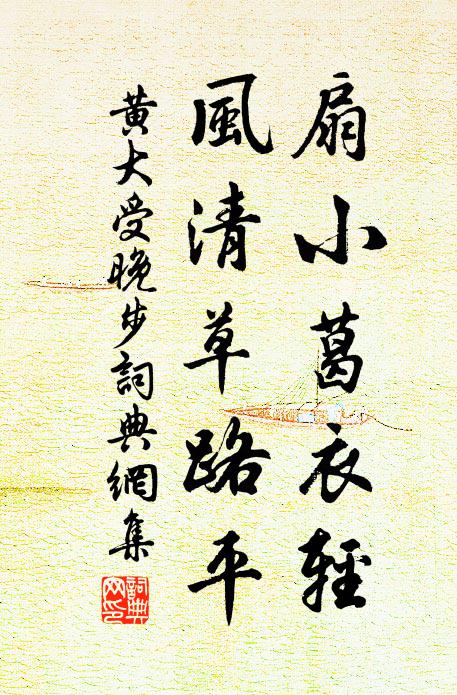 扇小葛衣輕
風清草路平
黄大受晚步詞典網集
詞典網印